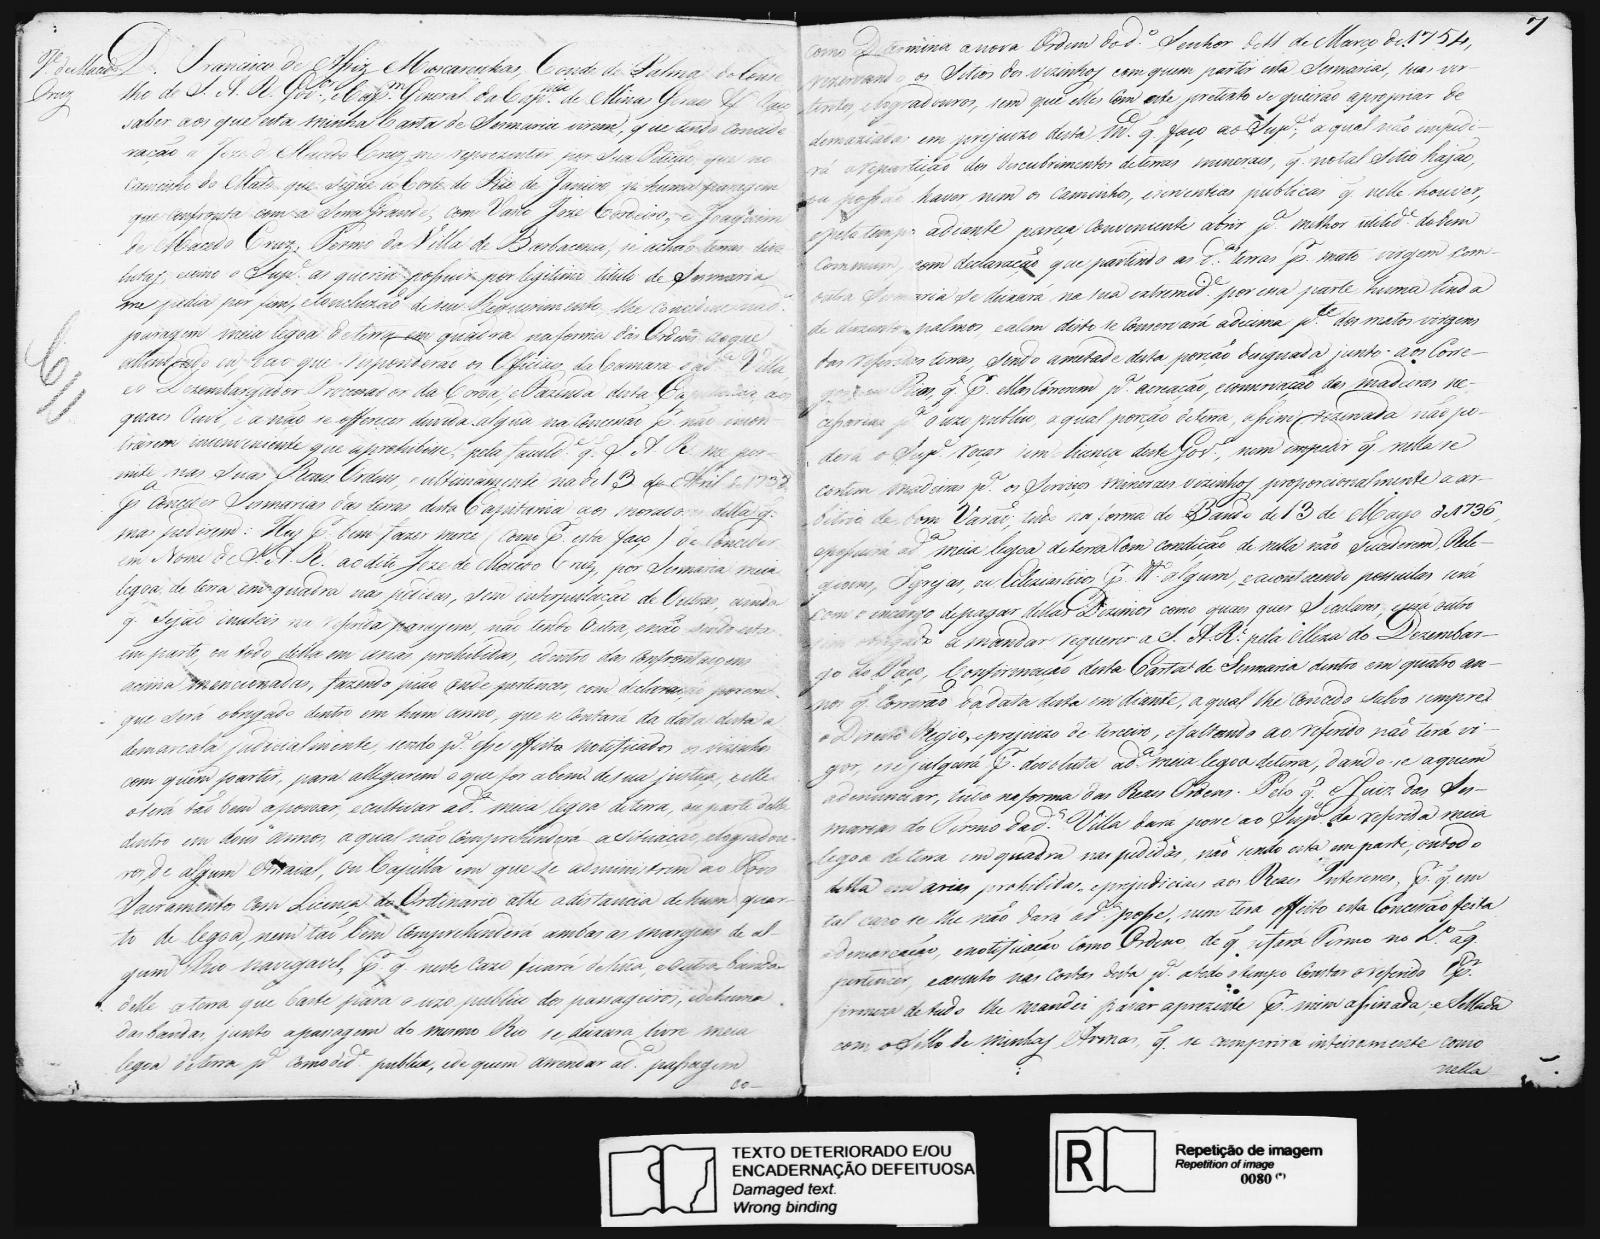 Je. de Macedo
Cruz
D. Francisco de Assiz Mascarenhas, Conde de Palma do Conse
lho de S. A. R. Gov.or, e Cap.m General da Cap.nia de Minas Geraes &. Faço
saber aos que esta minha Carta de Sesmaria virem, que tendo conside
ração a Joze de Macedo Cruz me reprezentar por sua Petição, que no
Caminho do Mato, que segue á Corte do Rio de Janeiro na huma paragem
que confronta com a Serra Grande, com Vasco Joze Cordeiro, e Joaquim
de Macedo Cruz, Termo da Villa de Barbacena, se achão terras devo
lutas, e como o Sup.e as queria possuir por legitimo titulo de Sesmaria
me pedia por fim, e concluzão de seu Requerimento, lhe concedesse na d.a
paragem meia legoa de terra em quadra na forma das Ordens, ao que
attendendo eu e ao que responderão os Officiaes da Camara da d.a Villa
e o Dezembargador Procurador da Coroa, e Fazenda desta Capitania, aos
quaes Ouvi, e a não se offerecer duvida algũa na Concessão p.r não encon
trarem inconveniente que a prohibisse, pela faculd.e q. S. A. R. me per-
mite nas Suas Reaes Ordens, e ultimamente na de 13 de Abril de 1738
p.a Conceder Sesmarias das terras desta Capitania aos moradores della q.
mas pedirem: Hey p.r bem fazer merce (como p.r esta faço) de Conceder
em Nome de S. A. R. ao dito Joze de Macedo Cruz, por Sesmaria meia
legoa de terra em quadra nas pedidas, sem interpolação de Outras, ainda
q. sejão inuteis na referida paragem, não tendo Outra, e não sendo esta
em parte, ou todo della em areas prohibidas, e dentro das confrontações
acima mencionadas, fazendo pião onde pertencer, com declaração porem
que será obrigado dentro em hum anno, que se Contará da data desta a
demarcala judicialmente, sendo p.a esse effeito notificados os vizinhos
com quem partir, para allegarem o que for a bem de sua justiça, e elle
o será tão bem a povoar, e cultivar a d.a meia legoa de terra, ou parte della
dentro em dous annos, a qual não comprehenderá a situação, e logradou-
ros, de algum Arraial, ou Capella em que se administrem ao Povo
Sacramentos com Licença do Ordinario athe a distancia de hum quar-
to de legoa, nem tão bem comprehenderá ambas as margens de al
gum Rio navegavel, p.r q. neste Cazo ficará de hũa, e outra banda
delle a terra que baste para o uzo publico dos passageiros, e de huma
das bandas junto a passagem do mesmo Rio se deixará livre meia
legoa de terra p.a comodid.e publica, e de quem arrendar a d.a passagem
co-
7
como determina a nova Ordem do d.o Senhor de 11 de Março de 1754,
rezervando os Sitios dos vizinhos com quem partir esta Sesmaria, suas ver
tentes, e logradouros, sem que elles com este pretexto se queirão apropriar de
demaziadas em prejuizo desta M.ce q. faço ao Sup.e, a qual não impedi-
rá a repartição dos descubrimentos de terras mineraes, q. no tal Sitio hajão,
ou possão haver nem os Caminhos, e serventias publicas q. nelle houver,
e pelo tempo adeante pareça conveniente abrir p.a melhor utilid.e do bem
Commum, com declaração que partindo as d.as terras p.r mato virgem com
outra Sesmaria se deixará na sua extremid.e por essa parte huma linda
de duzentos palmos, e alem disto se Conservará a decima p.te dos matos virgens
das referidas terras, sendo ametade desta porção designada junto aos Corre-
gos ou Rios, q. p.r ellas Correrem p.a creação, e conservação das madeiras ne-
cessarias p.a o uzo publico, a qual porção de terra, assim rezervada não po-
derá o Sup.e roçar sem licença deste Gov.o, nem impedir q. nella se
cortem madeiras p.a os Serviços mineraes vizinhos proporcionalmente a ar-
bitrio de bom Varão, tudo na forma do Bando de 13 de Mayo de 1736,
e possuirá a d.a meia legoa de terra com condição de nella não succederem Reli-
gioens, Igrejas, ou Eclesiasticos p.r tt.o algum, e acontecendo possuilas será
com o encargo de pagar dellas Dizimos como quaes quer Seculares, e será outro
sim obrigado a mandar requerer a S. A. R. pela Meza do Dezembar-
go do Paço, Confirmação desta Carta de Sesmaria dentro em quatro an-
nos q. Correrão da data desta em diante, a qual lhe concedo salvo sempre
o Direito Regio, e prejuizo de terceiro, e faltando ao referido não terá vi-
gor, e se julgará p.r devoluta a d.a meia legoa de terra, dando-se a quem
a denunciar, tudo na forma das Reaes Ordens. Pelo q. o Juiz das Ses-
marias do Termo da d.a Villa dará posse ao Sup.e da referida meia
legoa de terra em quadra nas pedidas, não sendo esta em parte, ou todo
della em areas prohibidas, e prejudiciaes aos Reaes Interesses, p.r q. em
tal cazo se lhe não dará a d.a posse, nem terá effeito esta Concessão feita
a demarcação, e notificação como Ordeno, de q. se fará Termo no L.o a q.
pertencer, e assento nas costas desta p.a a todo o tempo Constar o referido. E p.r
firmeza de tudo lhe mandei passar a prezente p.r mim assinada, e Sellada
com o Sello de minhas Armas, q. se cumprira inteiramente como
nella
TEXTO DETERIORADO E/OU
ENCADERNAÇÃO DEFEITUOSA
Damaged text.
Wrong binding
R
Repetição de imagem
Repetition of image
0080 (*)